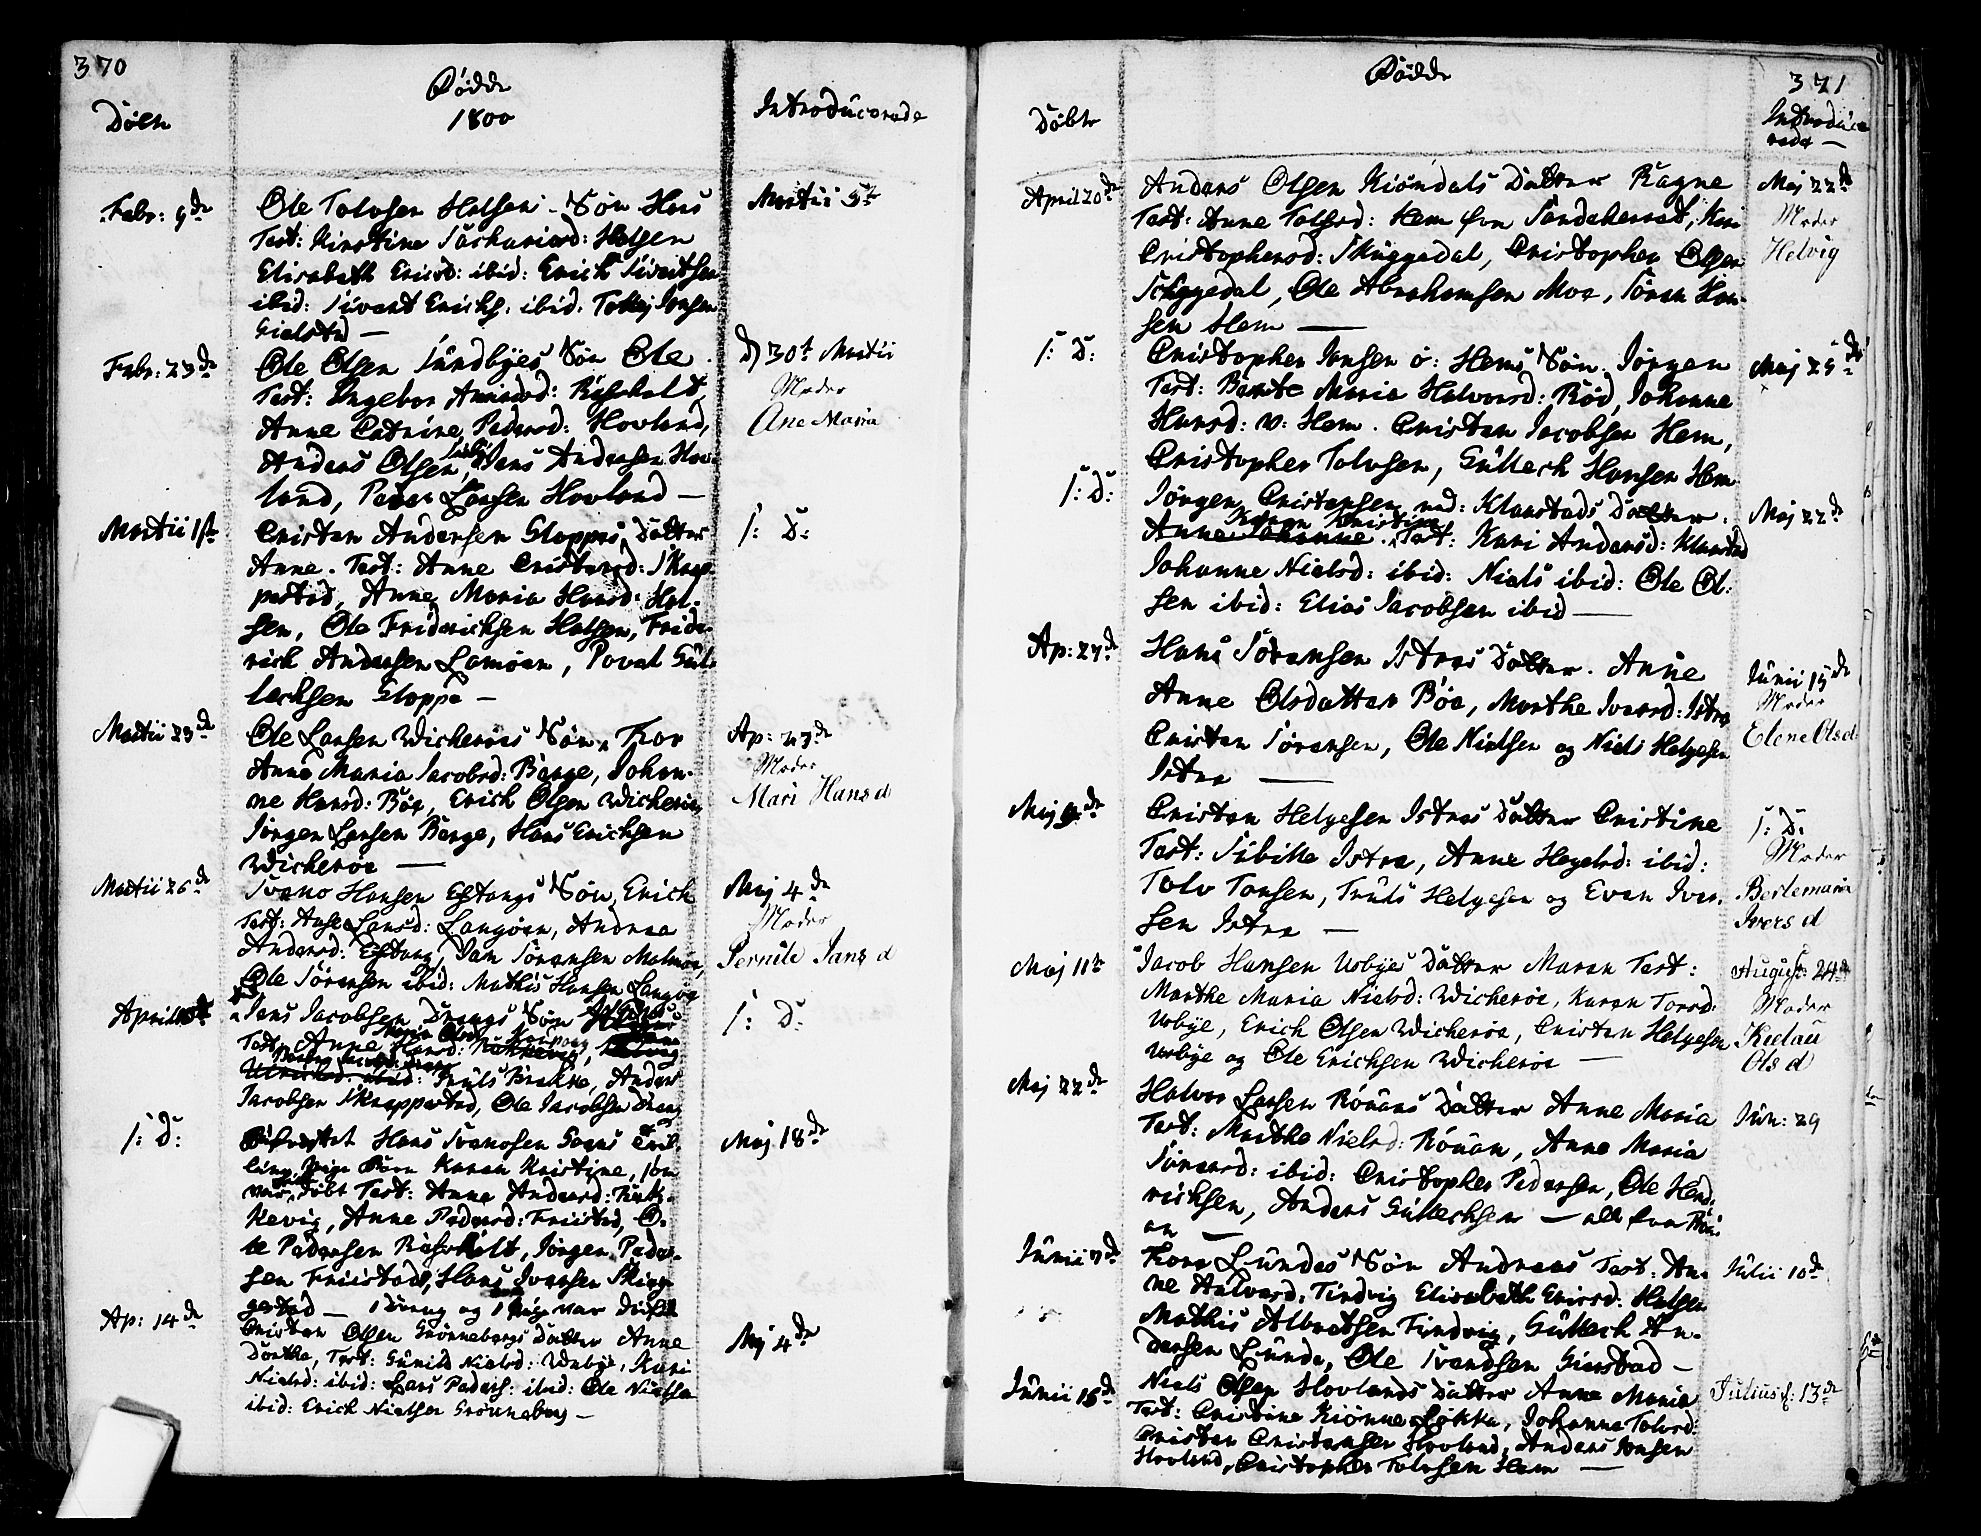 370
Fødde
1800
Døbte
Introducerede
Febr: 9de
Ole Tolvsen Halsens Søn Hans
Test: Kirstine Sachariasd: Halsen
Elisabeth Ericsd: ibid: Erich Sivertsen
ibid: Sivert Erichs: ibid. Tolv Jonsen
Gielstd —
Martii 5te
Febr: 23de
Ole Olsen Sundbyes Søn Ole
Test: Ingebor Aunesd: Ræholt
Anne Catrine Pedersd: Hovland,
Anders Olsen ibid: Hans Andersen Hov-
land, Peder Larsen Hovland —
D) 30te Martii
Moder
Ane Maria
Martii 1ste
Cristen Andersen Gloppes Datter
Anne. Test: Anne Cristensd: Skap-
pestad, Anne Maria Hansd: Hal-
sen, Ole Friderichsen Halsen, Fride-
rich Andersen Lamøen, Povel Gul-
lachsen Gloppe —
S: D:
Martii 23de
Ole Larsen Wicherøes Søn, Thor
Anne Maria Jacobsd: Berge, Johan-
ne Hansd: Bøe, Erich Olsen Wicherøe
Jørgen Larsen Berge, Hans Erichsen
Wicherøe —
Ap: 27de
Moder
Mari Hans d
Martii 26de
Svend Hansen Eftangs Søn, Erich
Test: Aase Larsd: Langøen, Andrea
Andersd: Eftang, Dam Sørensen Malmøe,
Ole Sørensen ibid: Mathis Hansen Langøe
Maj 4de
Moder
Pernile Jans d
April
Jens Jacobsen Drengs Søn
Test: Anne Hansd:
ibid: Truls Brekke, Anders
Jacobsen Skappestad, Ole Jacobsen Dreng
S: D:
S: D:
Hans Svendsen Goens Tvil-
ling Pige Børn Karen Kristine, som
var døbt Test: Anne Andersd: Rek-
kevig, Anne Pedersd: Friistad, O-
le Pedersen Ræholt, Jørgen Peder-
sen Friistad, Hans Iversen Skigge-
gestad — 1 Dreng og 1 Pige var dødfød
Maj 18de
Ap: 14de
Cristen Olsen Grønnebergs Datter Anne
Dorthe, Test: Gunild Nielsd: Wubye, Kari
Nielsd: ibid: Lars Peders: ibid: Ole Nielsen
ibid: Erich Nielsen Grønneberg —
Maj 4de
371
Fødde
Døbte
Introduce
rede —
April 20de
Anders Olsen Kiøndals Datter Ragne
Test: Anne Tolfsd: Hem fra Sandeherred, Kari
Cristophersd: Skuggedal, Cristopher Olsen
Schuggedal, Ole Abrahamsen Moe, Søren Han-
sen Hem —
Maj 22de
Moder
Helvig
S: D:
Cristopher Jensen ø: Hems Søn Jørgen
Test: Berte Maria Halvorsd: Rød, Johanne
Hansd: v: Hem. Cristen Jacobsen Hem,
Cristopher Tolvsen, Gullech Hansen Hem
Maj 25de
S: D:
Jørgen Cristensen ned: Klaastads Datter
Karen Kristine
Anne Johanne. Test: Kari Andersd: Klaastad
Johanne Nielsd: ibid: Niels ibid: Ole Ol:
sen ibid: Elias Jacobsen ibid —
Maj 22de
Ap: 27de
Hans Sørensen Istres Datter. Anne
Anne Olsdatter Bøe, Marthe Iversd: Istre
Cristen Sørensen, Ole Nielsen og Niels Helgesen
Istre —
Junii 15de
Moder
Elene Olsd
Maj 9de
Cristen Helgesen Istres Datter Cristine
Test: Sibille Istre, Anne Hegelsd: ibid:
Tolv Torsen, Truls Helgesen og Even Iver-
sen Istre —
S: D:
Moder
Berlemaria
Ivers d
Maj 11te
Jacob Hansen Wubyes Datter Maren Test:
Marthe Maria Nielsd: Wicherøe, Karen Torsd:
Wubye, Erich Olsen Wicherøe, Cristen Helgesen
Wubye og Ole Erichsen Wicherøe —
August: 24de
Moder
Kielau
Ols d
Maj 22de
Halvor Larsen Røuans Datter Anne Maria
Test: Marthe Nielsd: Røuan, Anne Maria
Sørensd: ibid: Cristopher Pedersen, Ole Hend-
richsen, Anders Gullechsen — all fra Røu-
an —
Jun: 29
Junii 7de
Thore Lundes Søn Andreas Test: An-
ne Halvorsd: Tindvig Elisabeth Ericsd: Halsen
Mathis Albretsen Tindvig, Gullech An-
dersen Lunde, Ole Svendsen Gierstad —
Julii 10de
Junii 15de
Niels Olsen Hovlands Datter Anne Maria
Test: Cristine Kiønne Løkke, Johanne Tolvsd:
Cristen Cristensen Hovland, Anders Jensen
Hovland, Cristopher Tolvsen Hem —
Julius: 13de